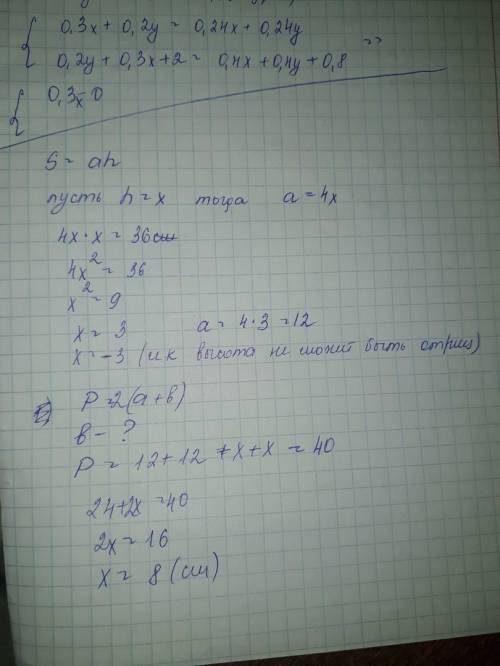 { 0,3x + 0,2y = 0,24x + 0,24y
0,2y + 0,3x + 2 = 0,4x + 0,4y + 0,8 =>
{ 0,3x - 0
S = ah
пусть h = x тогда a = 4x
4x · x = 36
4x² = 36
x² = 9
x = 3 a = 4 · 3 = 12
x = -3 (т.к высота не может быть отриц)
P = 2(a+b)
b - ?
P = 12 + 12 + x + x = 40
24 + 2x = 40
2x = 16
x = 8 (см)